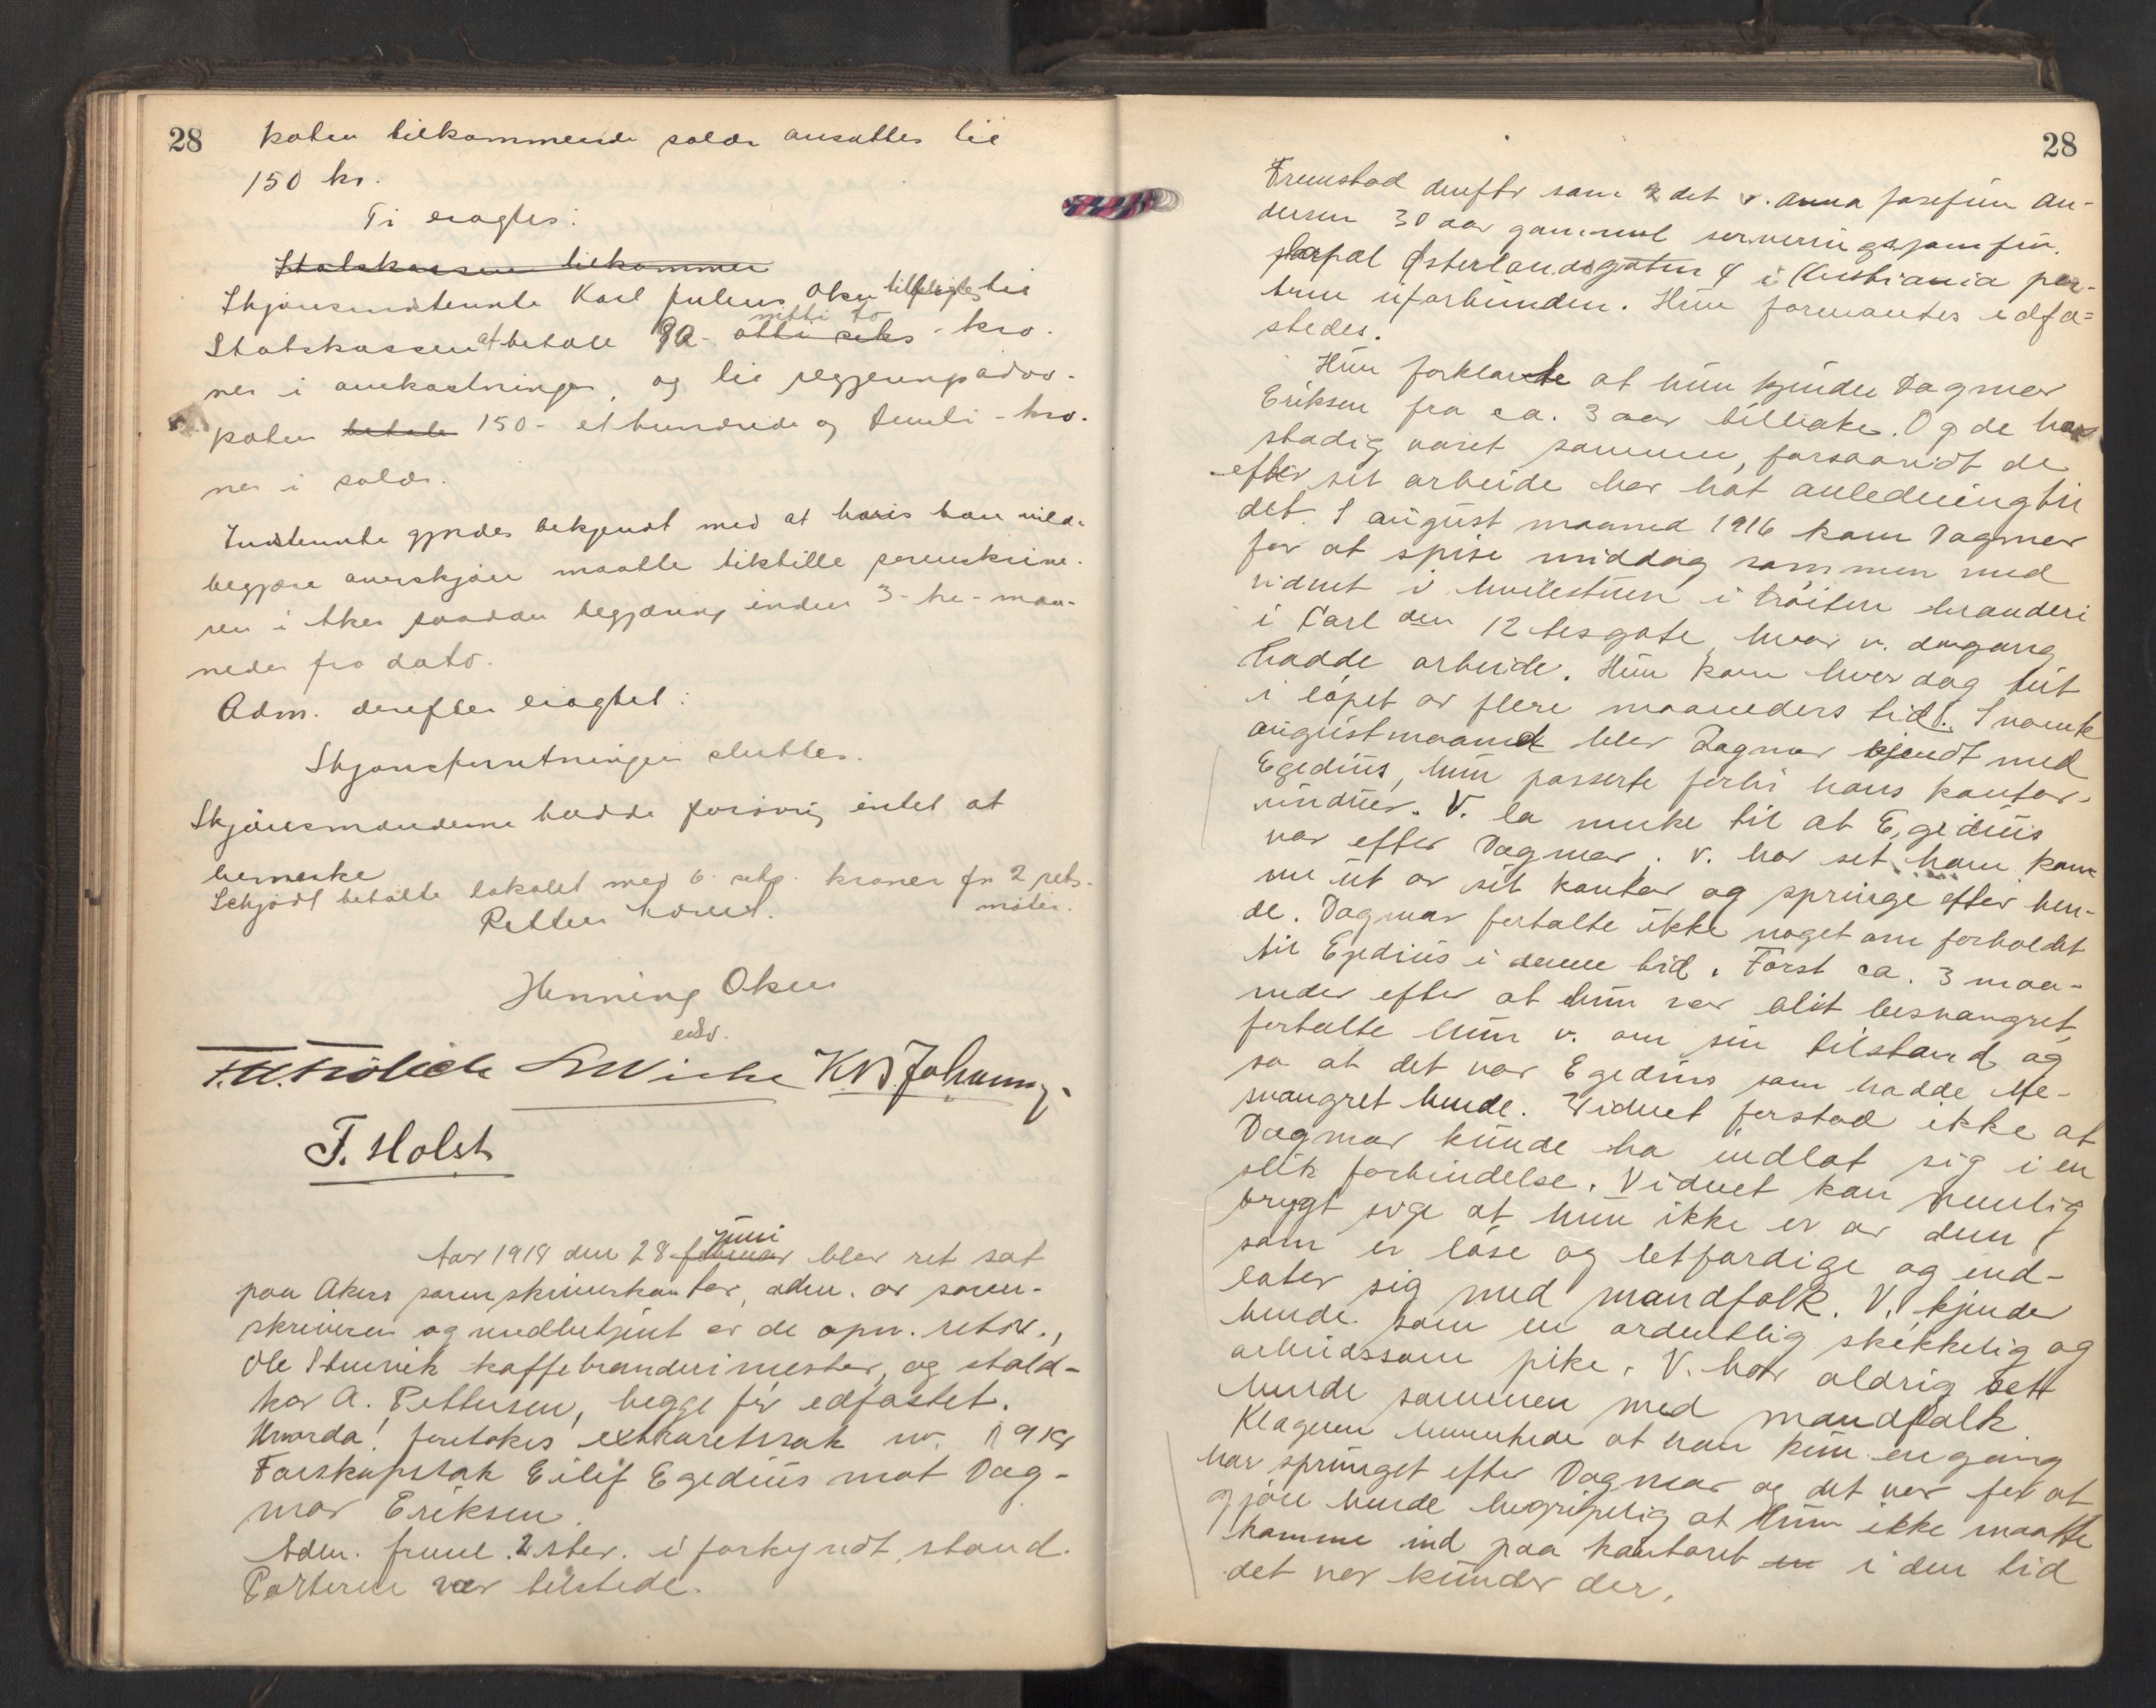 28
katen tilkommende salær ansattes til
150 kr.
Ti eragtes:
Statskassen tilkommer
Skjønsindstevnte Karl Julius Olsen tilpligtes til
Statskassen at betale 92- nitti to otti seks - kro-
ner i omkostninger, og til regjeringsadvo-
katen betale 150- et hundrede og femti - kro-
ner i salær.
Indstevnte gjordes bekjendt med at hvis han vilde
begjære overskjøn maatte tilstille sorenskrive-
ren i Aker saadan begjæring inden 3- tre - maa-
neder fra dato.
Adm. derefter eragtet:
Skjønsforretningen sluttes.
Skjønsmændene hadde forøvrig intet at
bemerke
Schjødt betalte lokalet med 6 seks kroner for 2 rets-
møter.
Petter
Henning Olsen
edsv.
T. H. Frölich K. B. Johannes
T. Holst
Aar 1918 den 28 februar juni blev ret sat
paa Akers sorenskriverkontor, adm. av soren-
skriveren og medbetjent av de opn. retsv.,
Ole Stenvik kaffebranderimester, og stald-
kar A. Pettersen, begge før edfæstet.
Hvorda! foretokes extraretssak nr. 1918
Farskapssak Eilif Egedius mot Dag-
mar Eriksen.
Adm. freml. 2 stev. i forkyndt stand.
Parterne var tilstede.
28
Fremstod derefter som 2det v. Anna Josefine An-
dersen 30 aar gammel serveringsjomfru,
Østerlandsgaten 4 i Kristiania par-
terne uforbunden. Hun formantes edfæ-
stedes.
Hun forklarte at hun kjender Dagmar
Eriksen fra ca. 3 aar tilbake. Og de har
stadig været sammen, forsaavidt de
efter sit arbeide har hat anledning til
det. I august maaned 1916 kom Dagmar
for at spise middag sammen med
vidnet i hvilestuen i Tröiten branderi
i Carl den 12tesgate, hvor v. dengang
hadde arbeide. Hun kom hver dag dit
i løpet av flere maaneders tid. I nævnte
augustmaaned blev Dagmar kjendt med
Egedius, hun passerte forbi hans kontor-
vinduer. V. la merke til at Egedius
var efter Dagmar. V. har set ham kom-
me ut av sit kontor og springe efter hen-
de. Dagmar fortalte ikke noget om forholdet
til Egedius i denne tid. Først ca. 3 maa-
neder efter at hun var blit besvangret,
fortalte hun v. om sin tilstand og
sa at det var Egedius som hadde be-
svangret hende. Vidnet forstod ikke at
Dagmar kunde ha indlat sig i en
slik forbindelse. Vidnet kan nemlig
trygt sige at hun ikke er av dem
som er løse og letfærdige og ind-
later sig med mandfolk. V. kjender
hende som en ordentlig skikkelig og
arbeidssom pike. V. har aldrig sett
hende sammen med mandfolk.
Klageren bemerkede at han kun engang
har sprunget efter Dagmar og det var for at
gjøre hende begripelig at hun ikke maatte
komme ind paa kontoret en i den tid
det var kunder der.